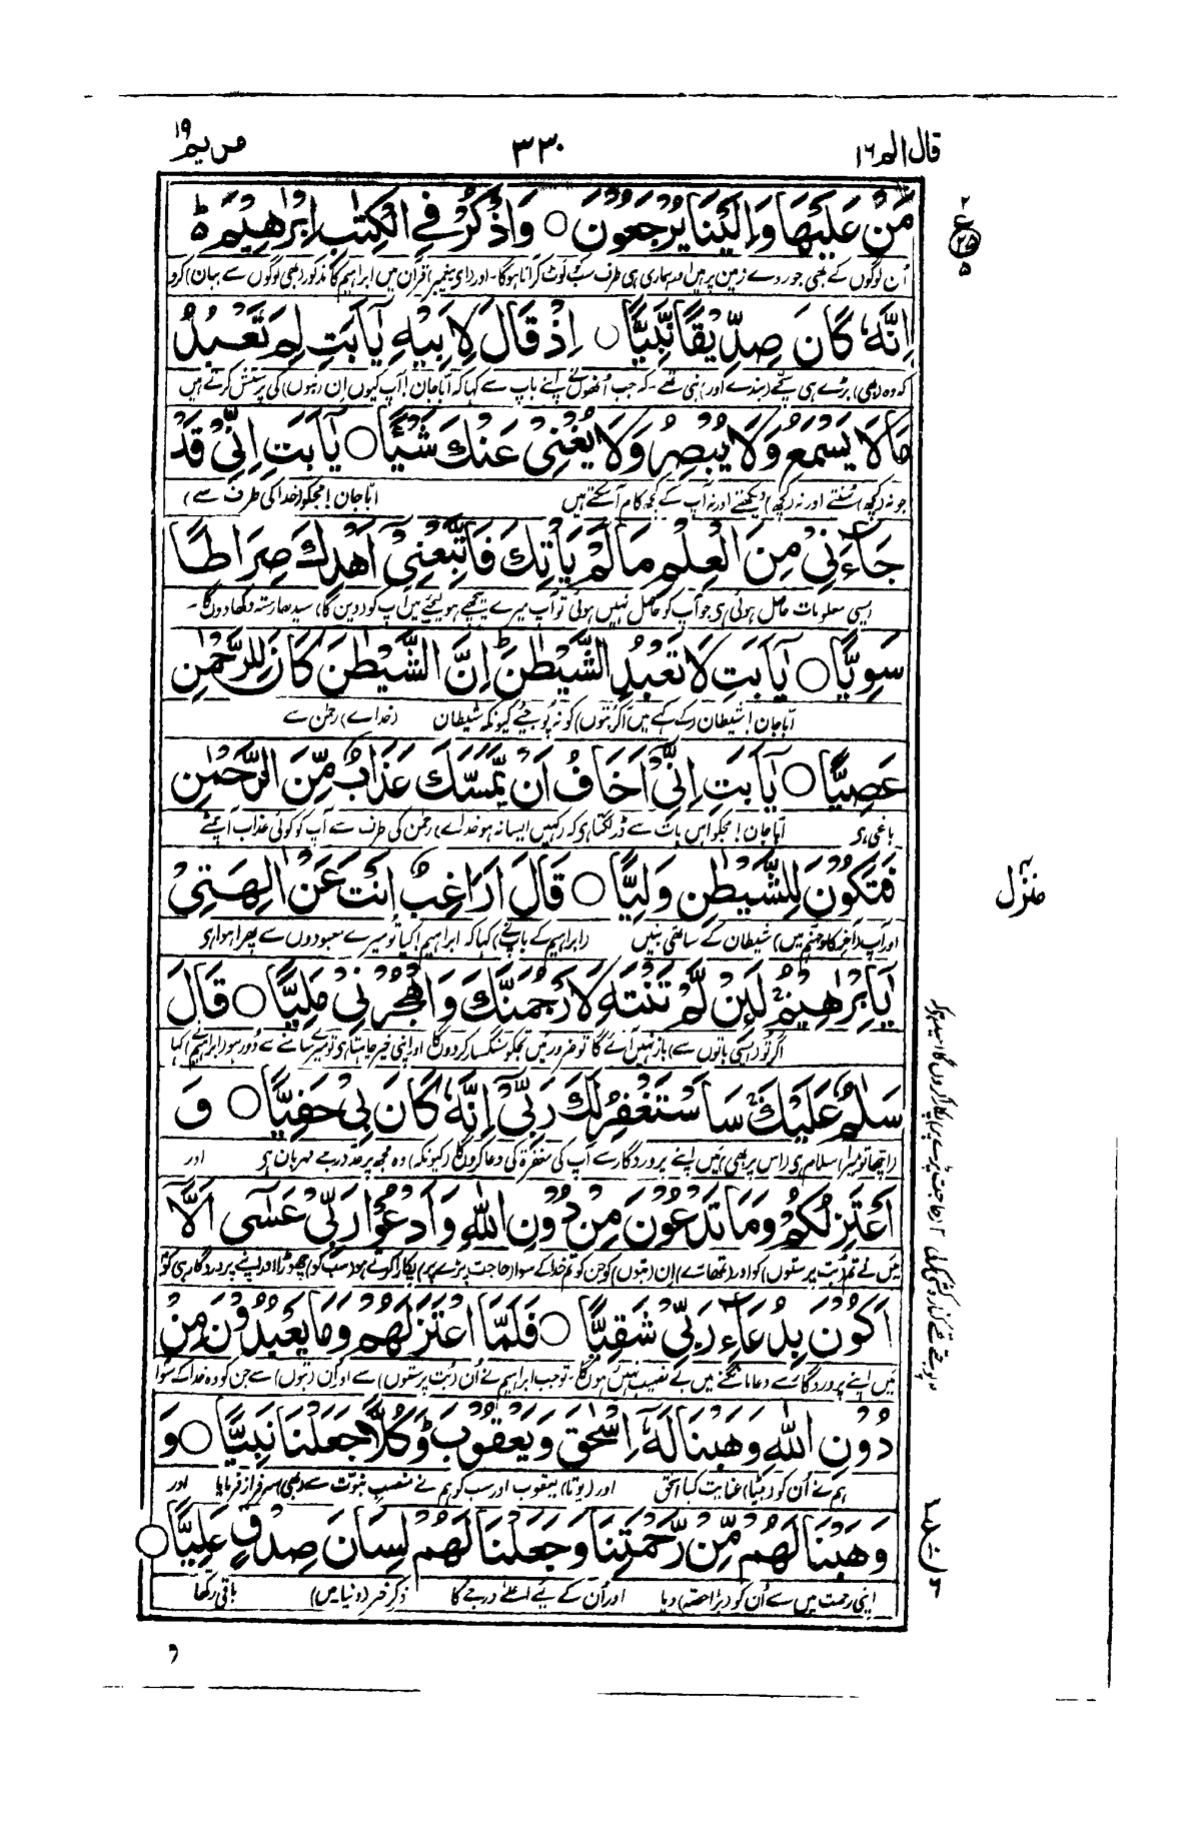 قال الم ١٦
٣٣٠
مریم ١٩
مَنْ عَلَيْهَا وَاِلَيْنَا يُرْجَعُوْنَ ○ وَاذْكُرْ فِي الْكِتٰبِ اِبْرٰهِيْمَ ڛ
اُن لوگوں کے بھی جو روے زمین پر ہیں اور ہماری ہی طرف سب کو لوٹ کر آنا ہوگا۔ اور (اے پیغمبر) قرآن میں ابراہیم کا مذکور (بھی لوگوں سے بیان) کرو
اِنَّهٗ كَانَ صِدِّيْقًا نَّبِيًّا ○ اِذْ قَالَ لِاَبِيْهِ يٰۤاَبَتِ لِمَ تَعْبُدُ
کہ وہ (بھی) بڑے ہی سچے (بندے اور) نبی تھے۔ کہ جب اُنھوں نے اپنے باپ سے کہا کہ اباجان! آپ کیوں اِن (بتوں) کی پرستش کرتے ہیں
مَا لَا يَسْمَعُ وَلَا يُبْصِرُ وَلَا يُغْنِيْ عَنْكَ شَيْئًا ○ يٰۤاَبَتِ اِنِّيْ قَدْ
جو نہ (کچھ) سُنتے اور نہ (کچھ) دیکھتے اور نہ آپ کے کچھ کام آسکتے ہیں اباجان! مجکو (خدا کی طرف سے)
جَآءَنِيْ مِنَ الْعِلْمِ مَا لَمْ يَاْتِكَ فَاتَّبِعْنِيْۤ اَهْدِكَ صِرَاطًا
ایسی معلومات حاصل ہوئی ہی جو آپ کو حاصل نہیں ہوئی تو آپ میرے پیچھے ہولیجئے میں آپ کو (دین کا) سیدھا رستہ دکھادوں گا۔
سَوِيًّا ○ يٰۤاَبَتِ لَا تَعْبُدِ الشَّيْطٰنَ ؕ اِنَّ الشَّيْطٰنَ كَانَ لِلرَّحْمٰنِ
اباجان! شیطان (کے کہے میں آکر بتوں) کو نہ پوجیے کیونکہ شیطان (خداے) رحمٰن سے
عَصِيًّا ○ يٰۤاَبَتِ اِنِّيْۤ اَخَافُ اَنْ يَّمَسَّكَ عَذَابٌ مِّنَ الرَّحْمٰنِ
باغی ہی اباجان! مجکو اس بات سے ڈر لگتا ہی کہ (کہیں ایسا نہ ہو خداے) رحمٰن کی طرف سے آپ کو کوئی عذاب آچمٹے
فَتَكُوْنَ لِلشَّيْطٰنِ وَلِيًّا ○ قَالَ اَرَاغِبٌ اَنْتَ عَنْ اٰلِهَتِيْ
اور آپ (آخرکار جہنم میں) شیطان کے ساتھی بنیں (ابراہیم کے باپ نے) کہا کہ ابراہیم! کیا تو میرے معبودوں سے پھرا ہوا ہی
يٰۤاِبْرٰهِيْمُ ۚ لَىِٕنْ لَّمْ تَنْتَهِ لَاَرْجُمَنَّكَ وَاهْجُرْنِيْ مَلِيًّا ○ قَالَ
اگر تو (ایسی باتوں سے) باز نہیں آئے گا تو ضرور میں تجکو سنگسار کردوں گا اور اپنی خیر چاہتا ہی تو میرے سامنے سے دُور ہو (ابراہیم نے) کہا
سَلٰمٌ عَلَيْكَ ۚ سَاَسْتَغْفِرُ لَكَ رَبِّيْ ؕ اِنَّهٗ كَانَ بِيْ حَفِيًّا ○ وَ
(اچھا تو میرا) سلام ہی (اس پر بھی) میں اپنے پروردگار سے آپ کی مغفرۃ کی دعا کروں گا (کیونکہ) وہ مجھ پر حد درجے مہربان ہی اور
اَعْتَزِلُكُمْ وَمَا تَدْعُوْنَ مِنْ دُوْنِ اللّٰهِ وَاَدْعُوْا رَبِّيْ ۖ عَسٰۤى اَلَّاۤ
میں نے تم (بت پرستوں) کو اور (تمھارے) اِن (بتوں) کو جن کو تم خدا کے سوا (حاجت پڑے پر) پکارا کرتے ہو (سب کو) چھوڑا اور اپنے پروردگار ہی کو
اَكُوْنَ بِدُعَآءِ رَبِّيْ شَقِيًّا ○ فَلَمَّا اعْتَزَلَهُمْ وَمَا يَعْبُدُوْنَ مِنْ
میں اپنے پروردگار سے دعا مانگنے میں بے نصیب نہیں ہوں گا۔ تو جب ابراہیم نے اُن (بت پرستوں) سے اور اُن (بتوں) سے جن کو وہ خدا کے سوا
دُوْنِ اللّٰهِ وَهَبْنَا لَهٗۤ اِسْحٰقَ وَيَعْقُوْبَ ؕ وَكُلًّا جَعَلْنَا نَبِيًّا ○ وَ
ہم نے اُن کو (بیٹا) عنایت کیا اسحٰق اور (پوتا) یعقوب اور سب کو ہم نے منصبِ نبوّت سے (بھی) سرفراز فرمایا اور
وَهَبْنَا لَهُمْ مِّنْ رَّحْمَتِنَا وَجَعَلْنَا لَهُمْ لِسَانَ صِدْقٍ عَلِيًّا ○
اپنی رحمت میں سے اُن کو (بڑا حصّہ) دیا اور اُن کے لیے اعلےٰ درجے کا ذکرِ خیر (دنیا میں) باقی رکھا
ع
٢٥
٥
منزل